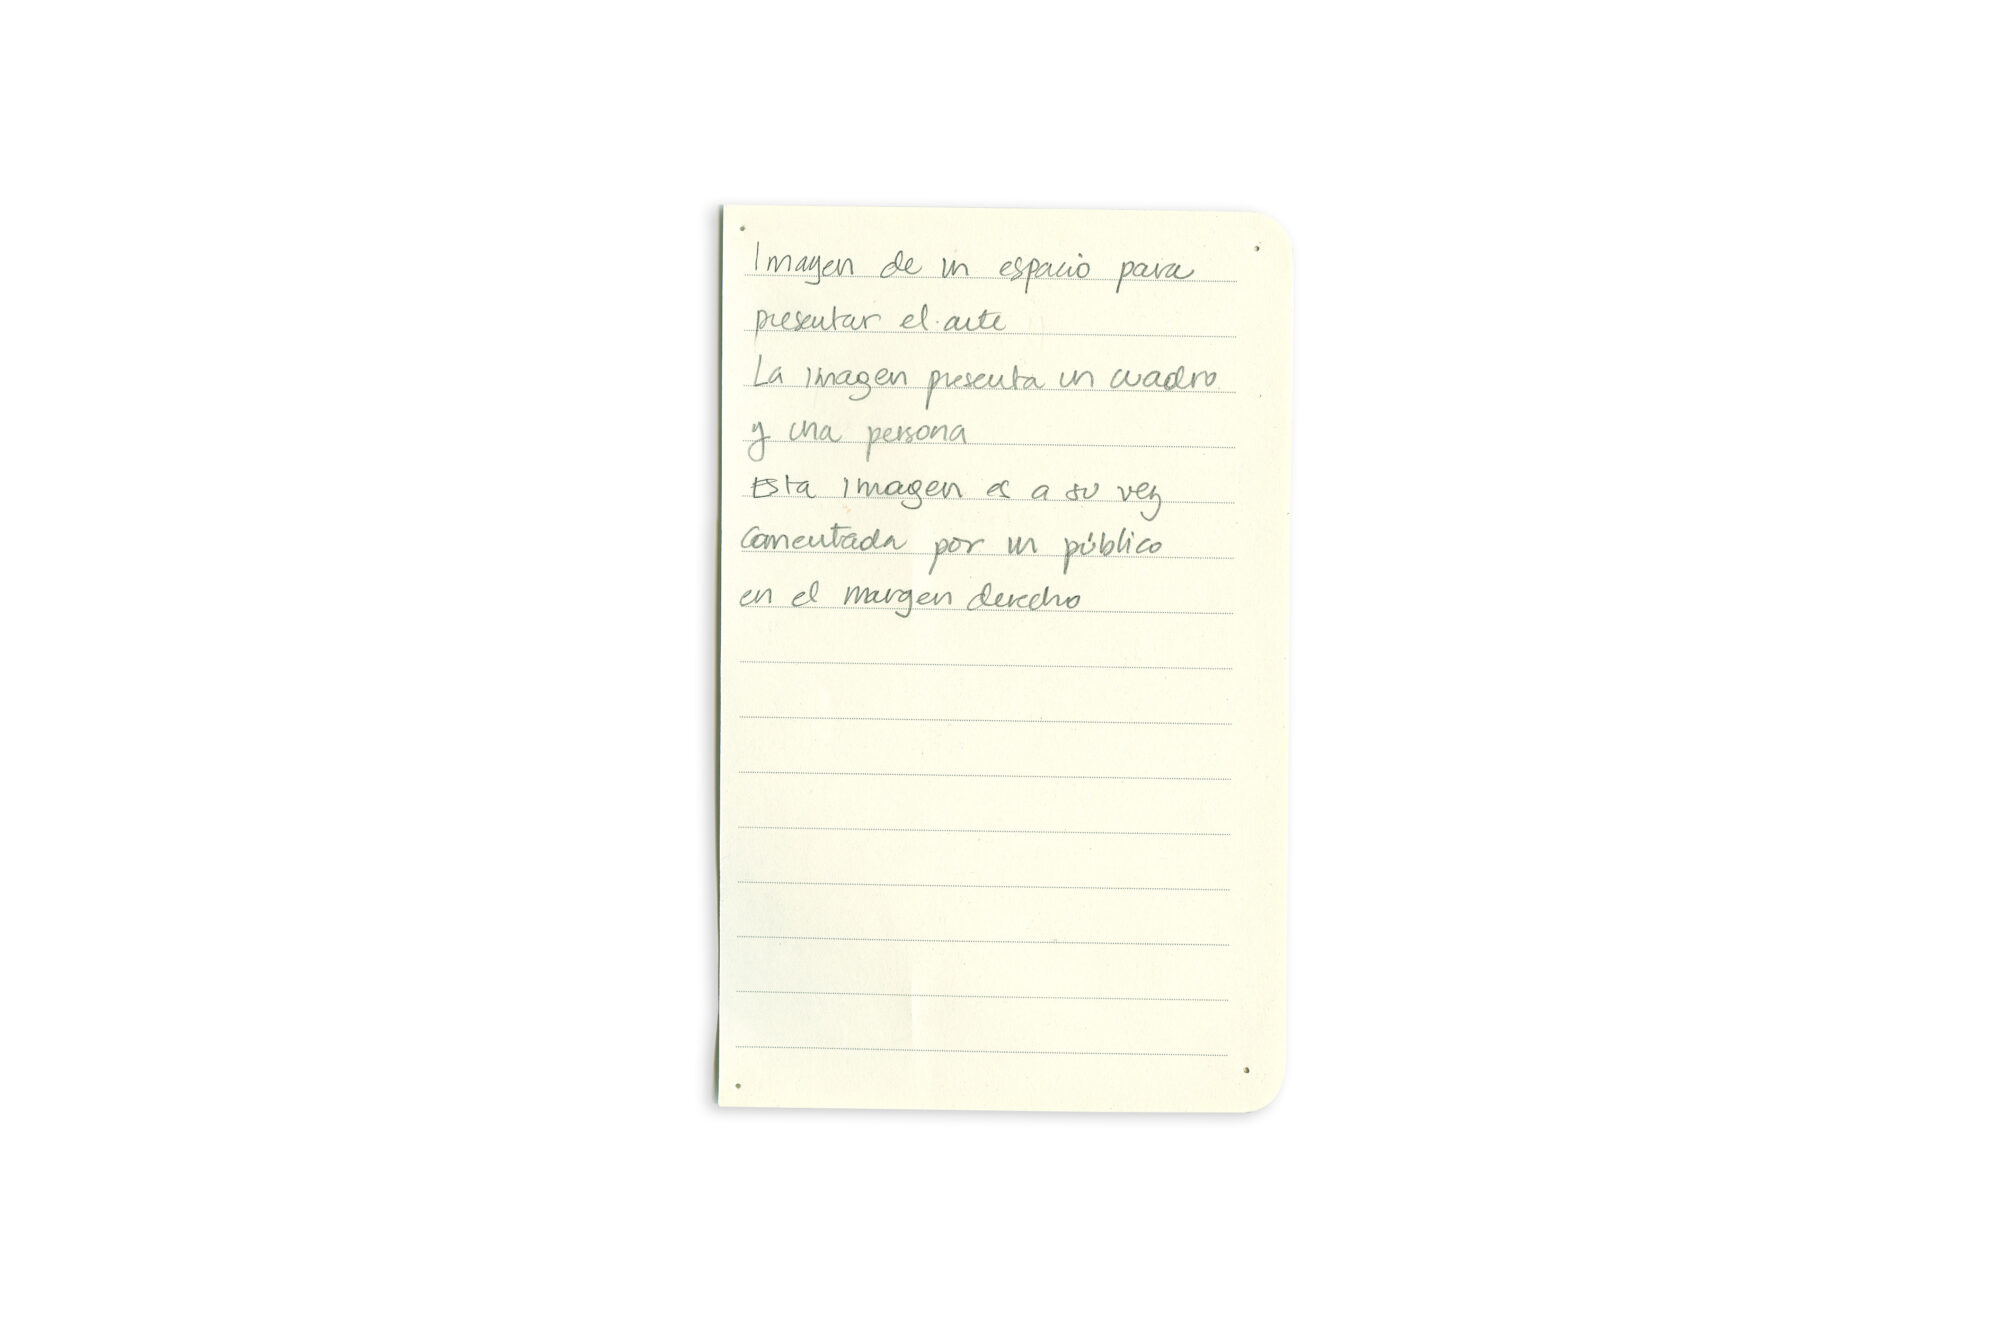 Imagen de un espacio para
presentar el arte
La imagen presenta un cuadro
y una persona
Esta imagen es a su vez
comentada por un público
en el margen derecho